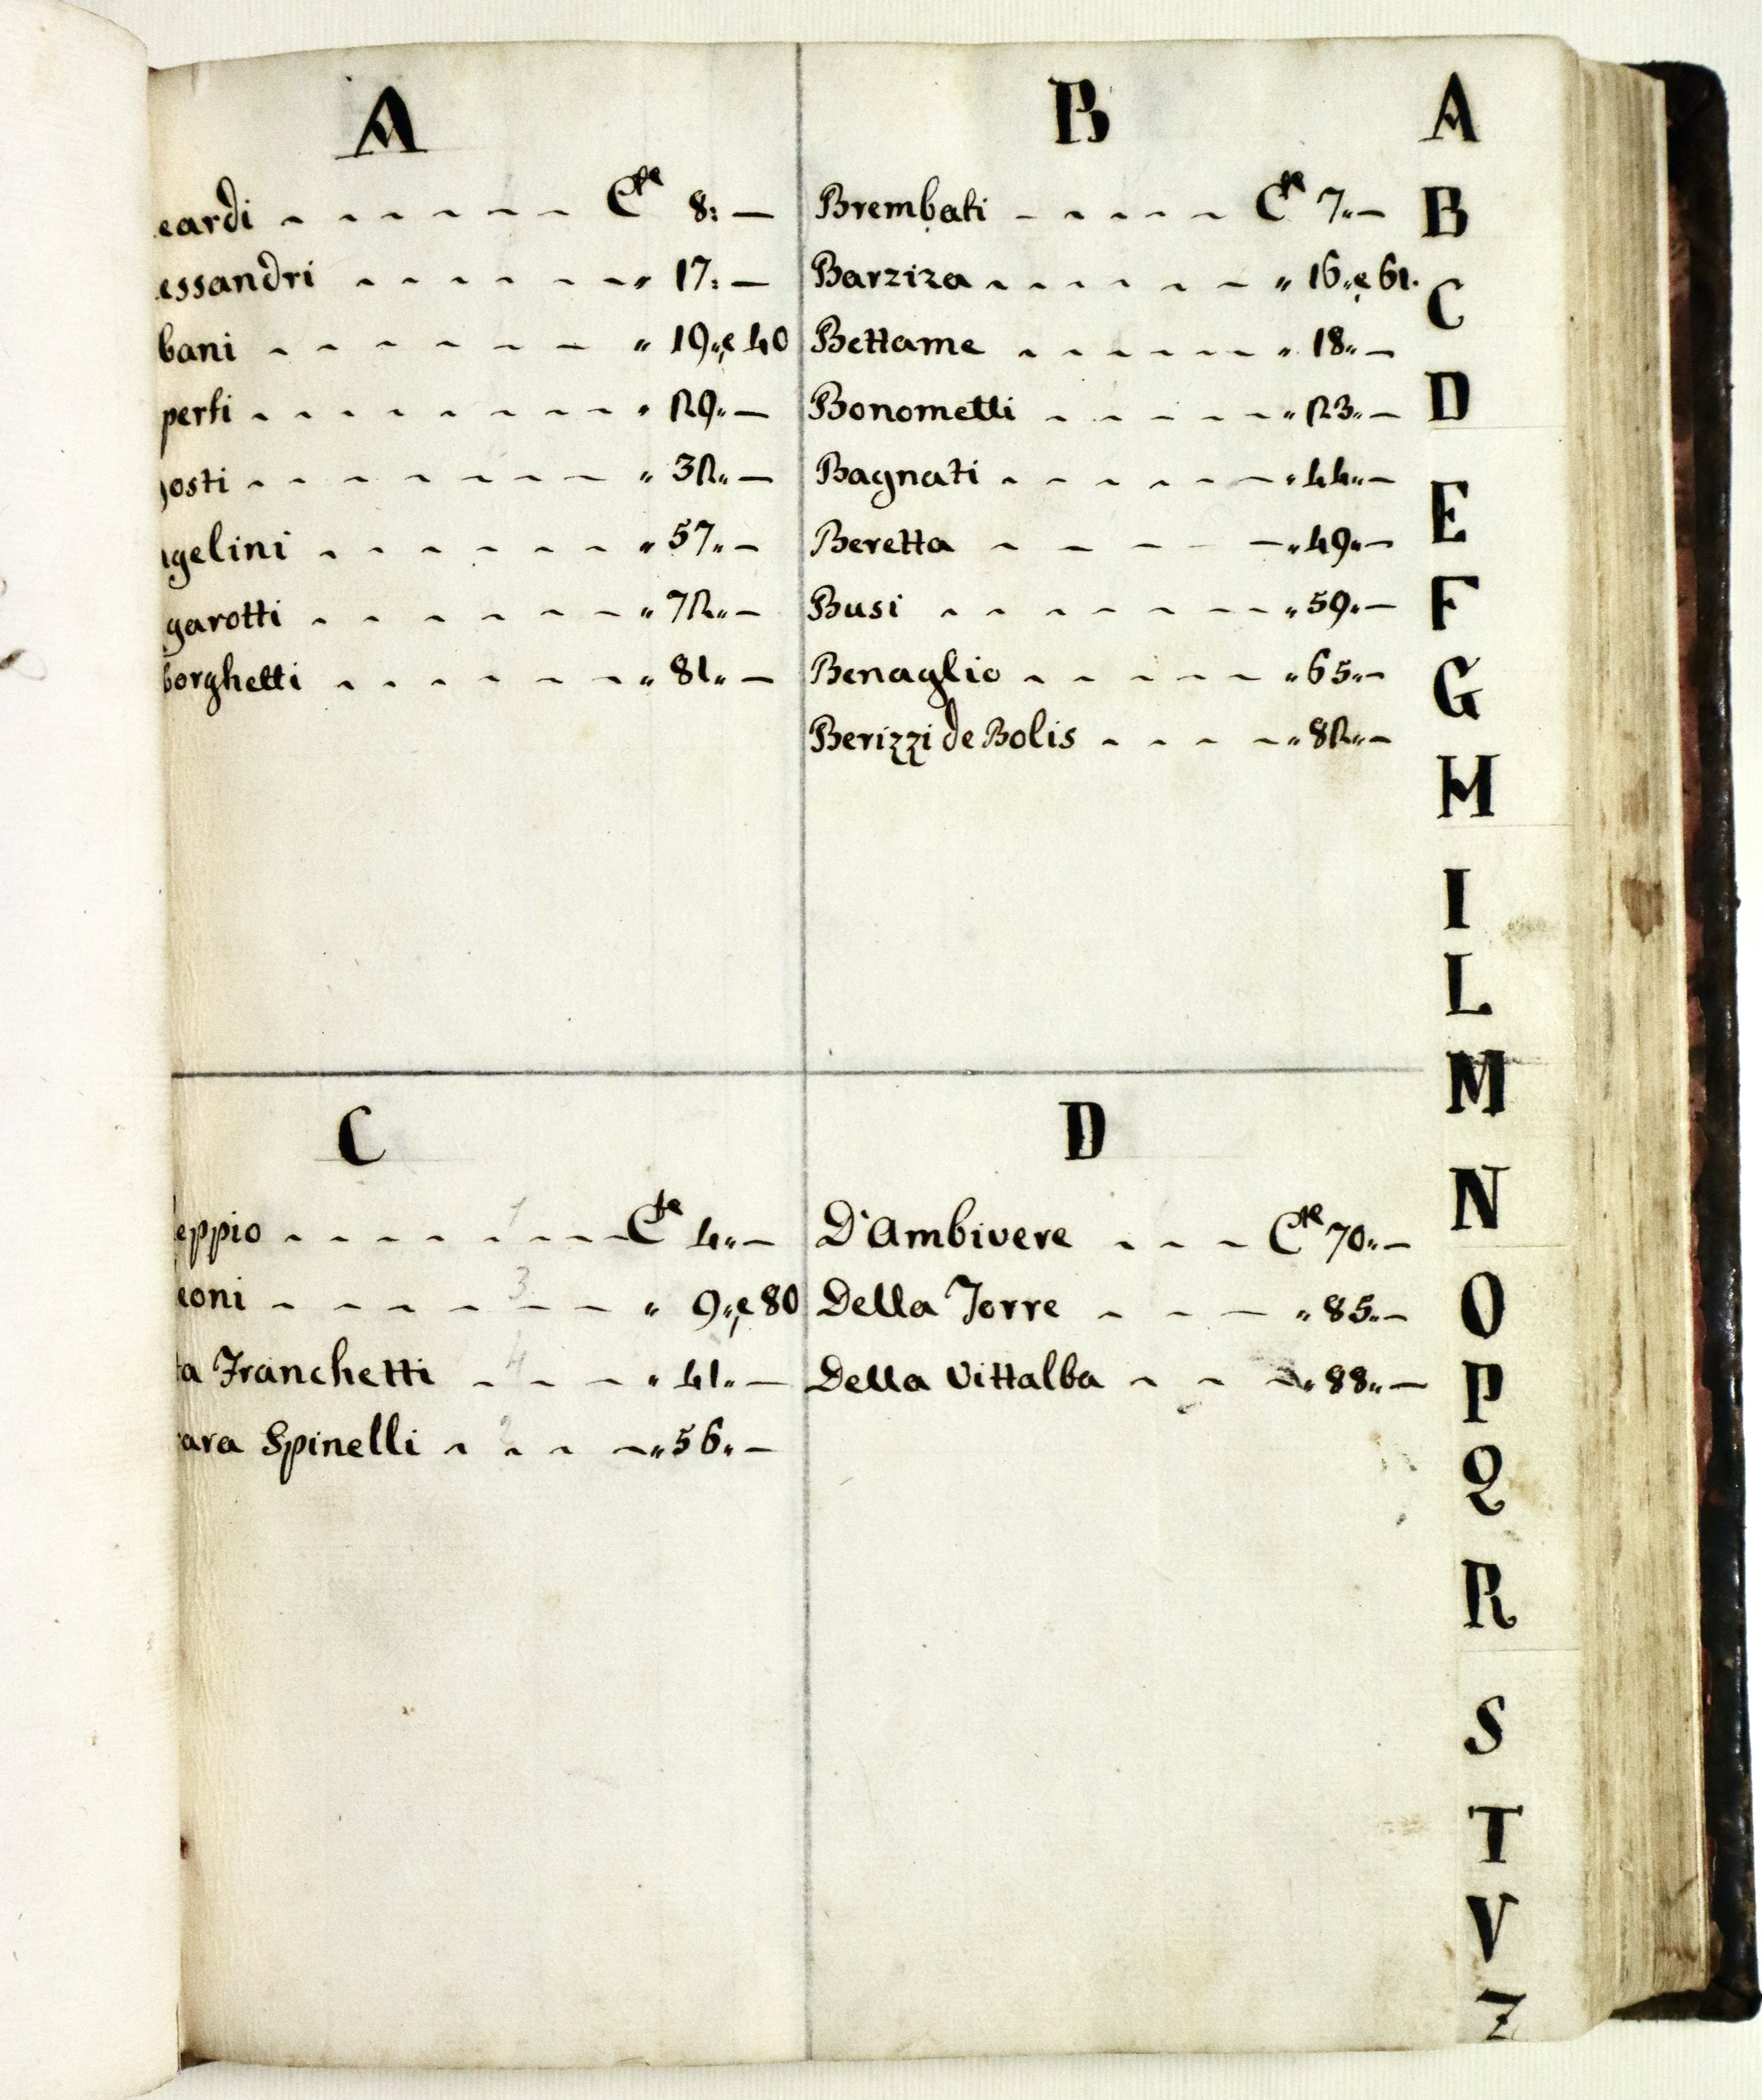 A
eardi Cte 8: —
essandri „ 17: —
bani „ 19„ e 40
perti „ 29„ —
osti „ 32„ —
gelini „ 57„ —
garotti „ 72„ —
borghetti „ 81„ —
B
Brembati Cte 7„ —
Barziza „ 16„ e 61.
Bettame „ 18„ —
Bonometti „ 23„ —
Bagnati „ 44„ —
Beretta „ 49„ —
Busi „ 59„ —
Benaglio „ 65„ —
Berizzi de Bolis „ 82„ —
C
eppio 1 Cte 4„ —
eoni 3 „ 9„ e 80
ta Franchetti 4 „ 41„ —
ara Spinelli 2 „ 56„ —
D
D'Ambivere Cte 70„ —
Della Torre „ 85„ —
Della Vittalba „ 88„ —
A
B
C
D
E
F
G
H
I
L
M
N
O
P
Q
R
S
T
V
Z